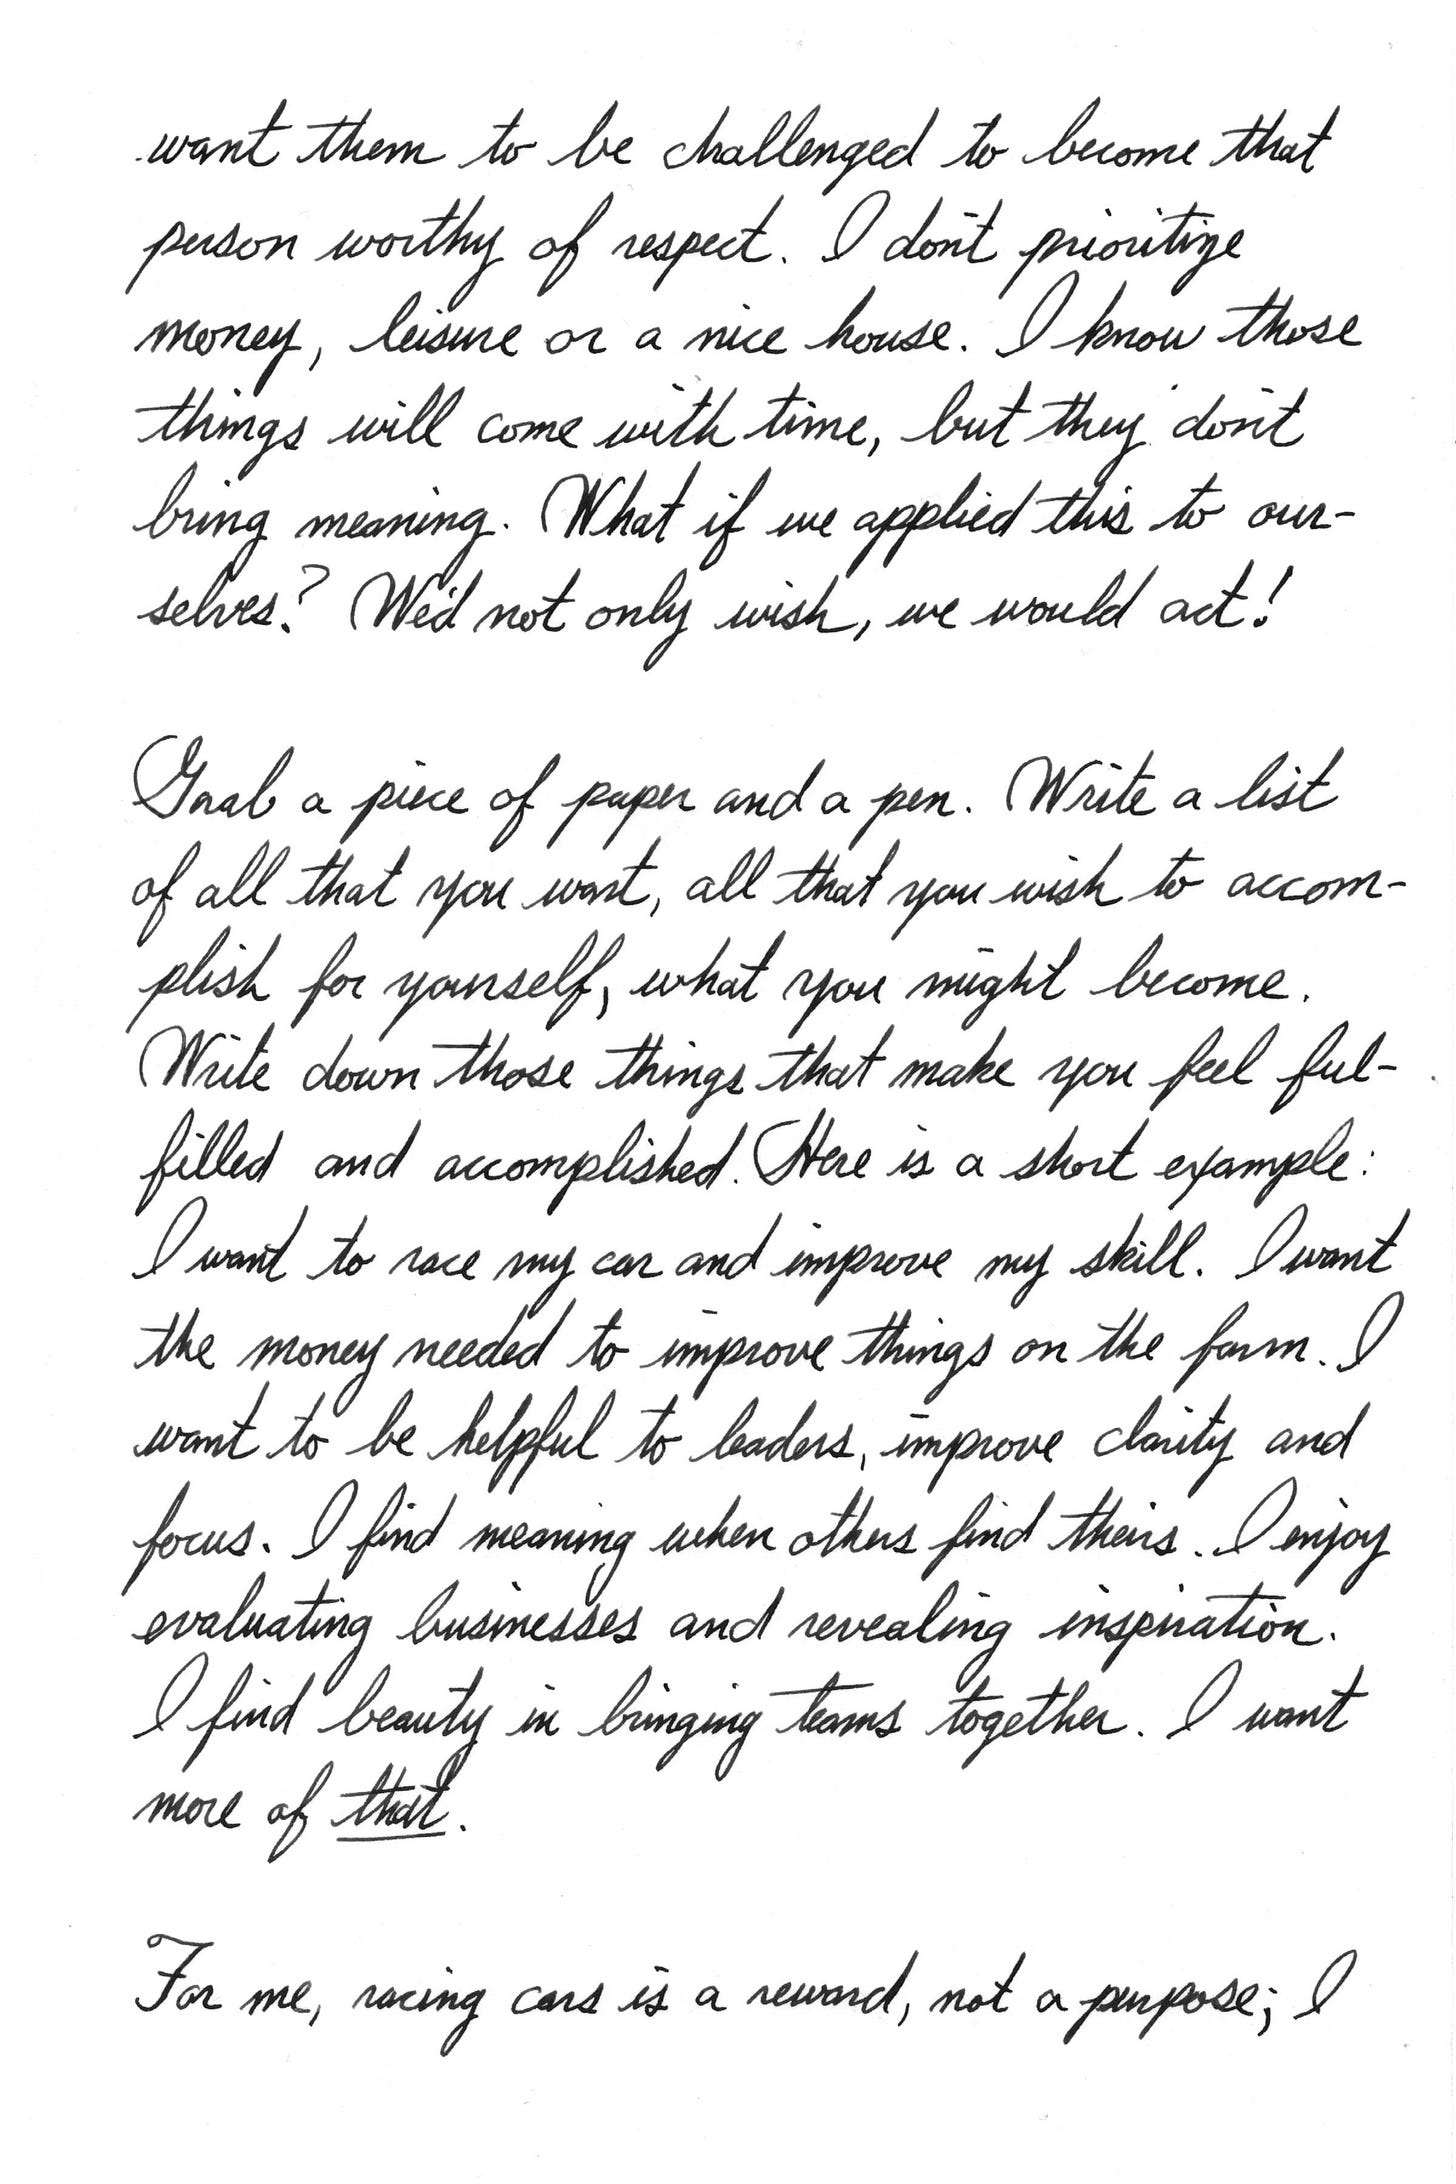 want them to be challenged to become that
person worthy of respect. I don't prioritize
money, leisure or a nice house. I know those
things will come with time, but they don't
bring meaning. What if we applied this to our-
selves? We'd not only wish, we would act!
Grab a piece of paper and a pen. Write a list
of all that you want, all that you wish to accom-
plish for yourself, what you might become.
Write down those things that make you feel ful-
filled and accomplished. Here is a short example:
I want to race my car and improve my skill. I want
the money needed to improve things on the farm. I
want to be helpful to leaders, improve clarity and
focus. I find meaning when others find theirs. I enjoy
evaluating businesses and revealing inspiration.
I find beauty in bringing teams together. I want
more of that.
For me, racing cars is a reward, not a purpose; I